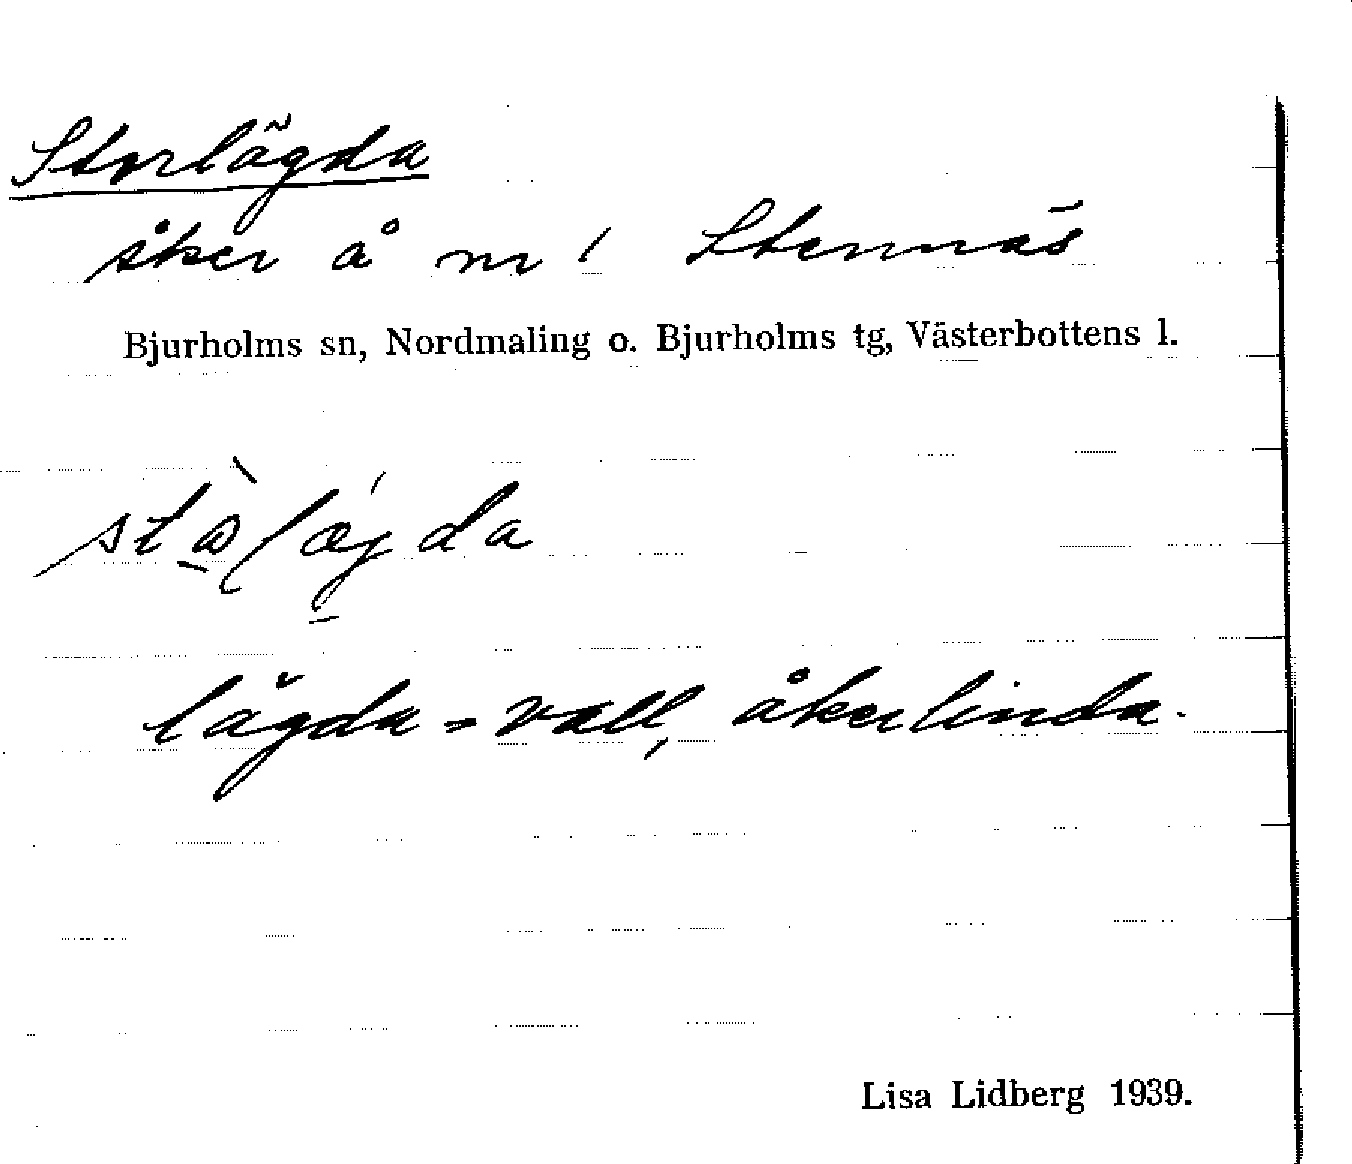 Storlägda
åker å nr 1 Stennäs
Bjurholms sn, Nordmaling o. Bjurholms tg, Västerbottens l.
lägda = vall, åkerlinda.
Lisa Lidberg 1939.